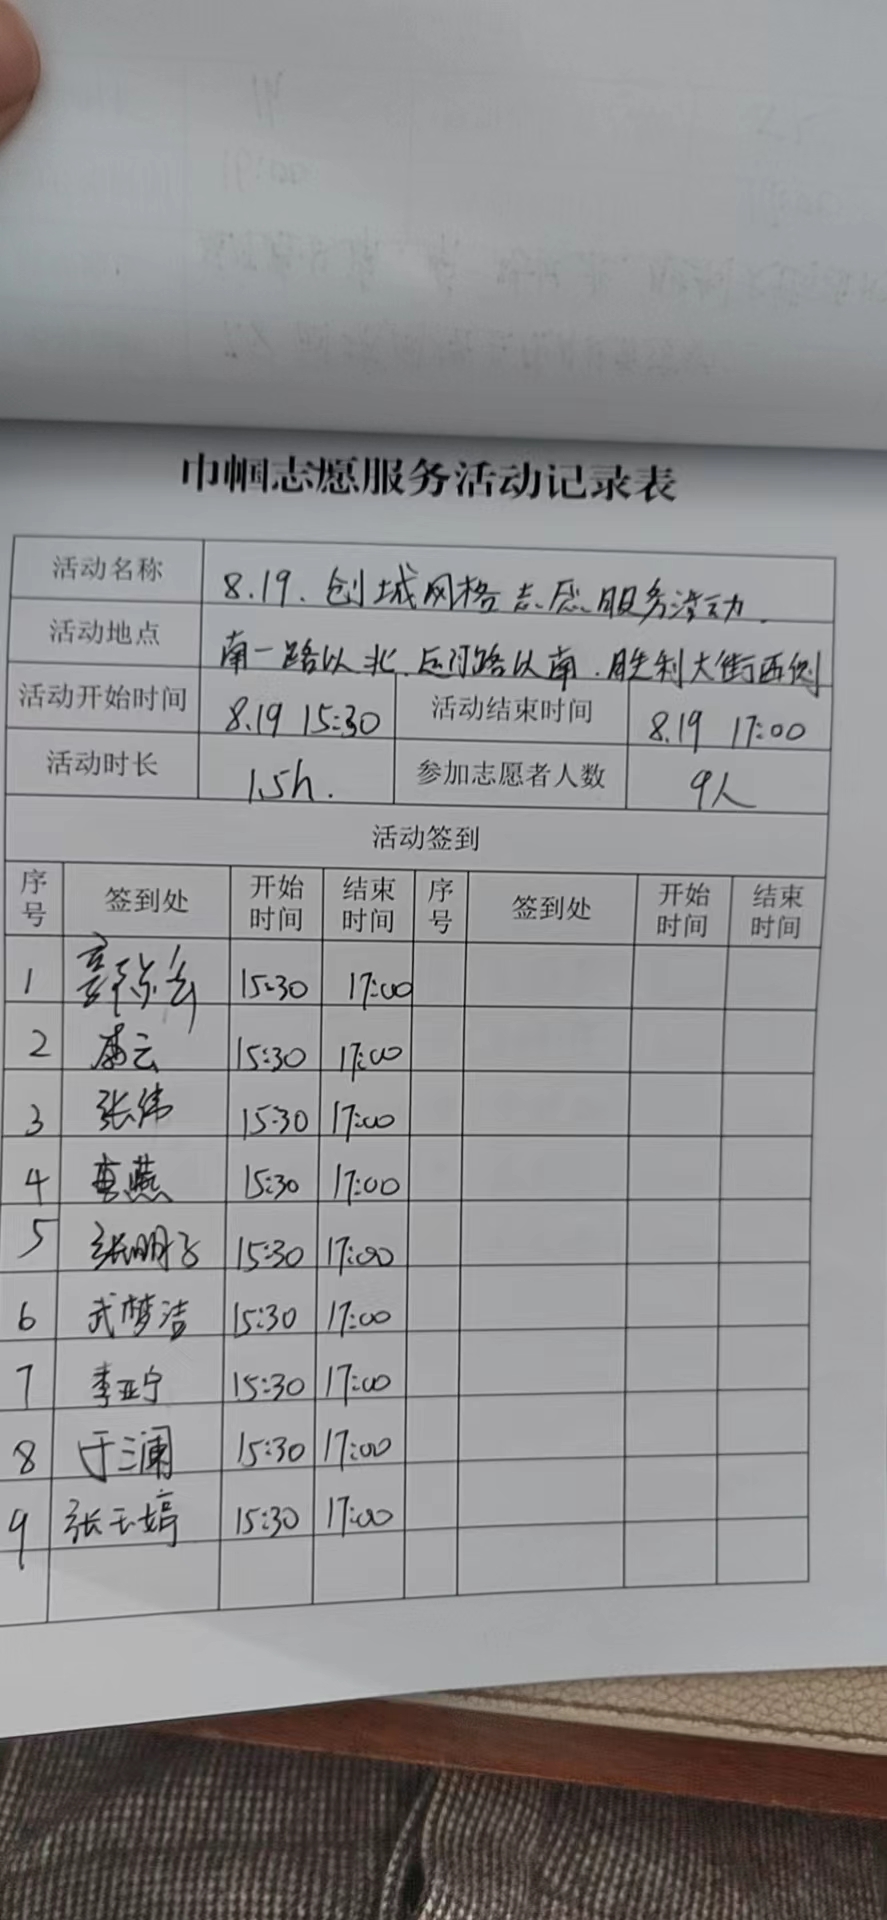 巾帼志愿服务活动记录表
活动名称 8.19.创城网格志愿服务活动.
活动地点 南一路以北、后河路以南、胜利大街西侧
活动开始时间 8.19 15:30 活动结束时间 8.19 17:00
活动时长 1.5h. 参加志愿者人数 9人
活动签到
序号 签到处 开始时间 结束时间 序号 签到处 开始时间 结束时间
1 15:30 17:00
2 云 15:30 17:00
3 张伟 15:30 17:00
4 燕 15:30 17:00
5 张明 15:30 17:00
6 武梦洁 15:30 17:00
7 李亚宁 15:30 17:00
8 于三澜 15:30 17:00
9 张玉婷 15:30 17:00